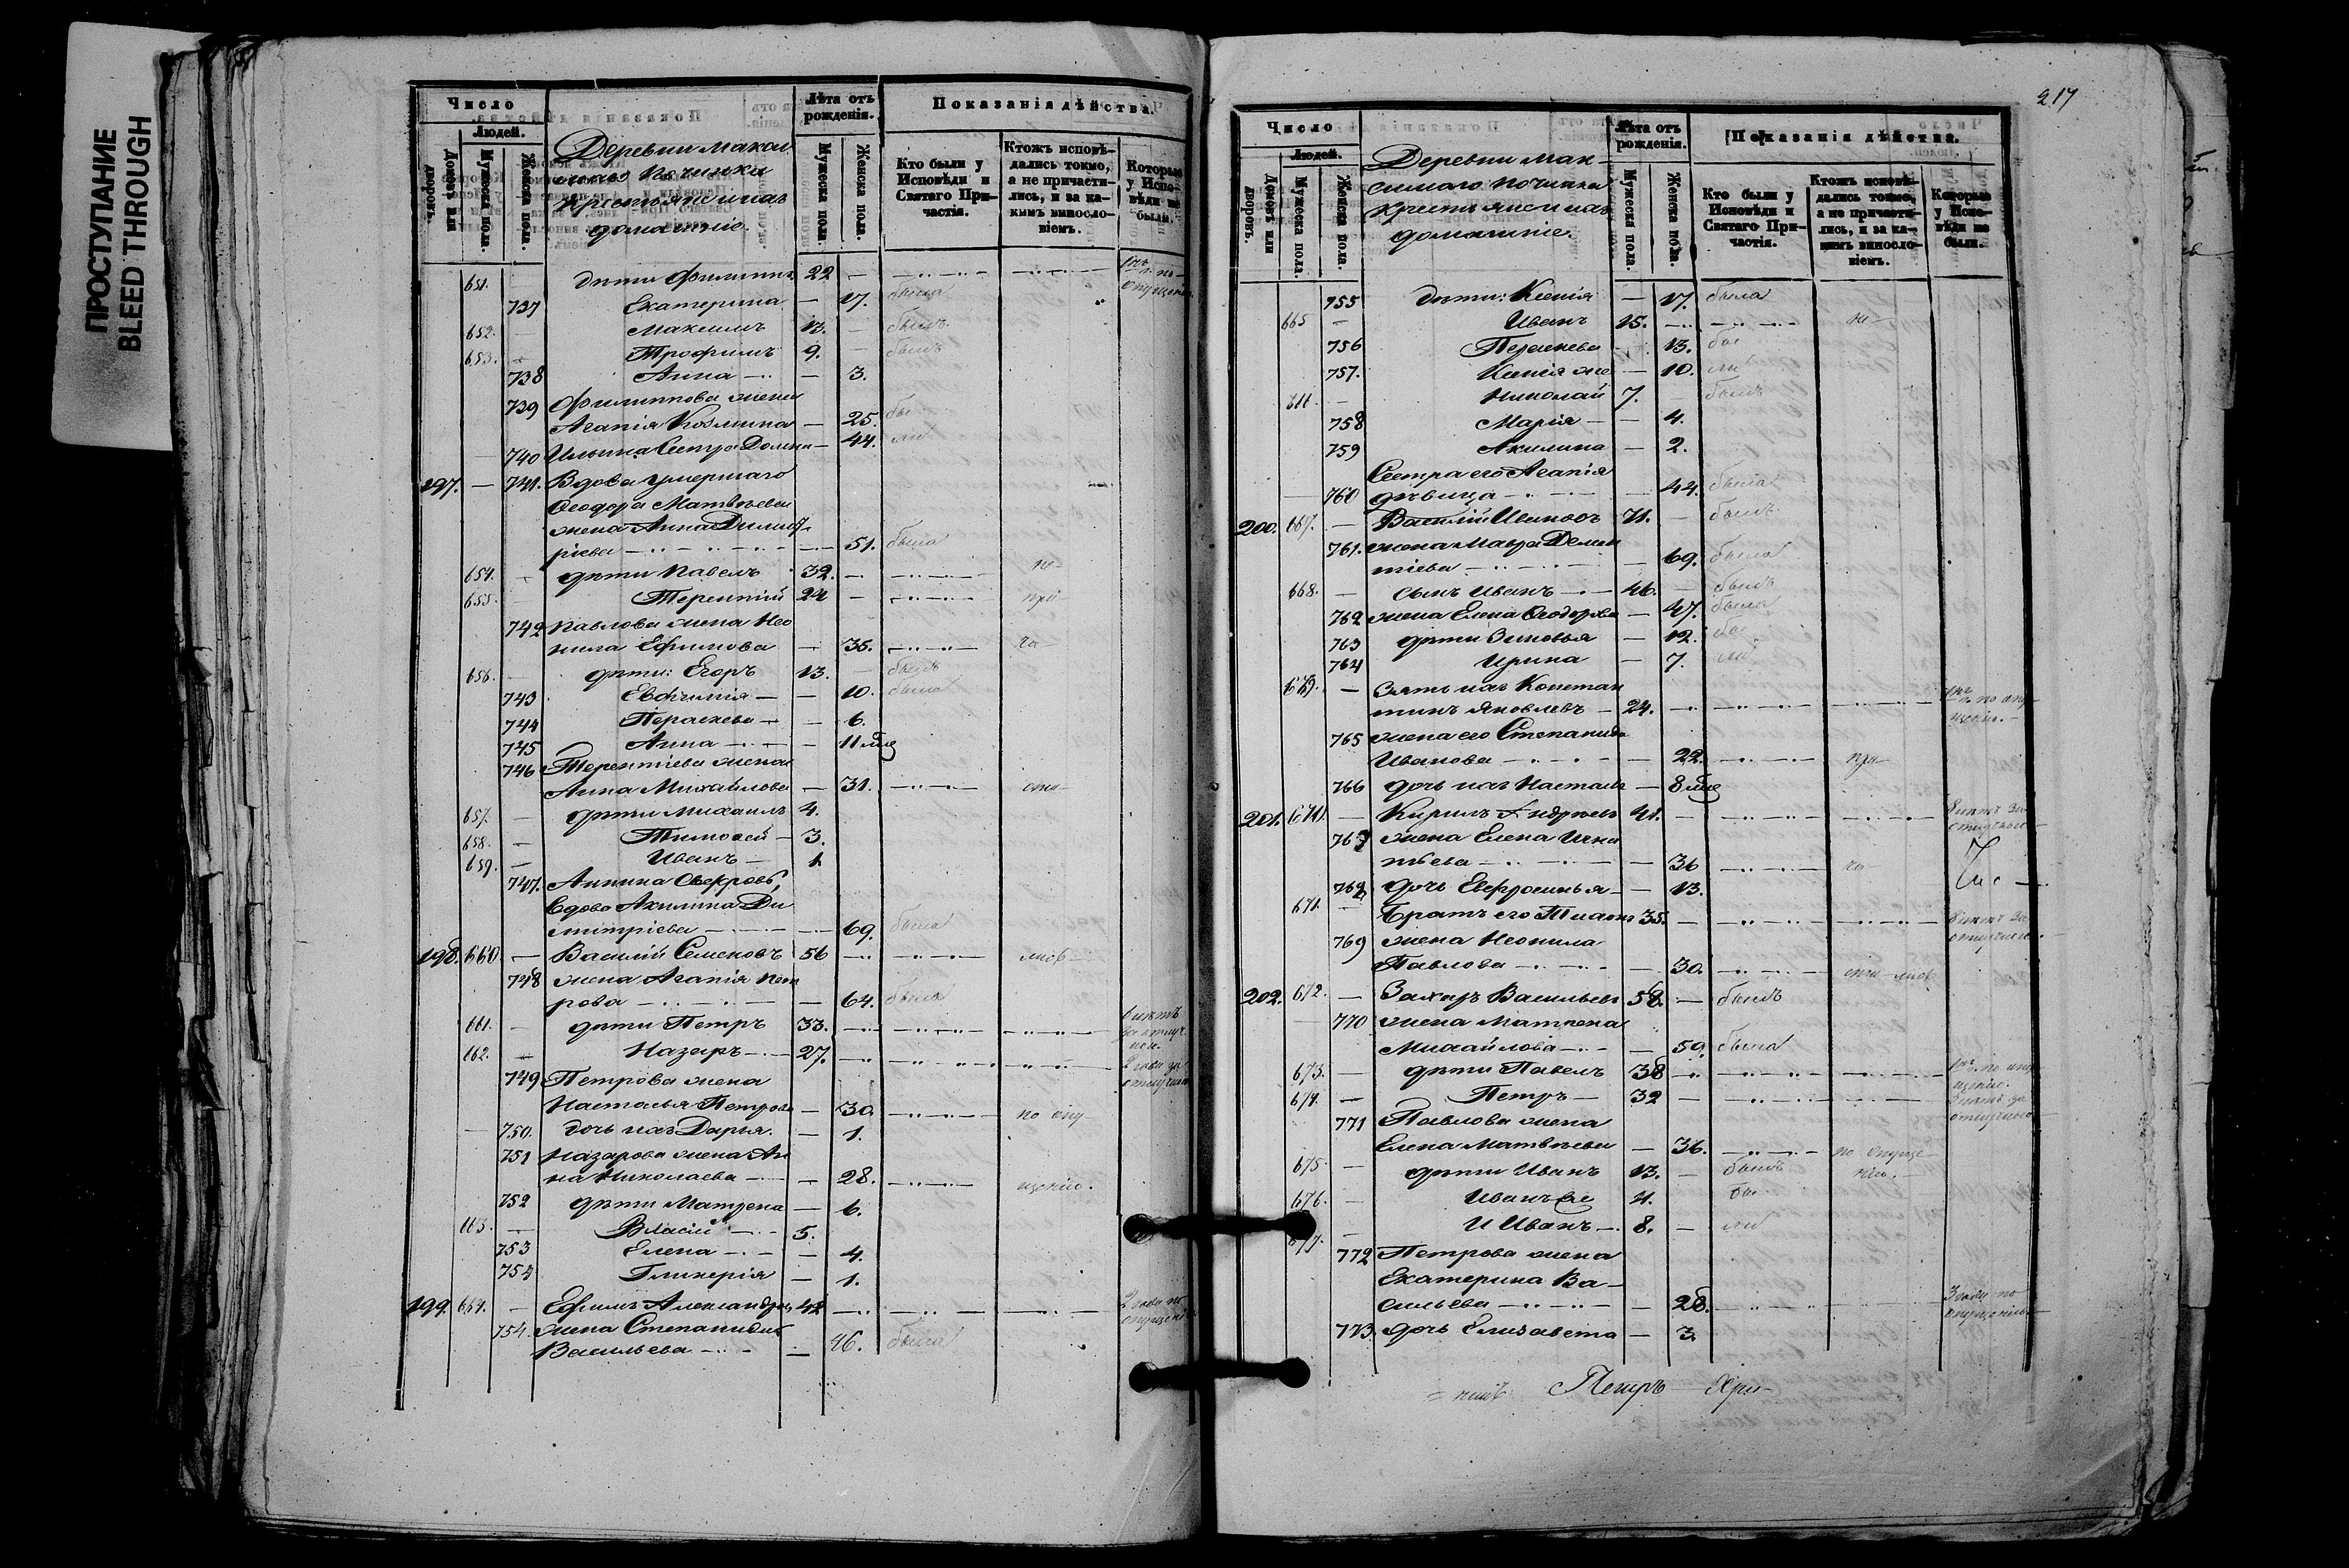 ПРОСТУПАНИЕ
BLEED THROUGH
Число
Людей.
Домовъ или дворовъ.
Мужеска пола.
Женска пола.
Деревни Макси
маго Починка
крестьяне и ихъ
домашніе.
Лѣта отъ рожденія.
Мужеска пола.
Женска пола.
Показанія дѣйства.
Кто были у Исповѣди и Святаго Причастія.
Ктожъ исповѣдались токмо, а не причастились, и за какимъ винословіемъ.
Которые у Исповѣди не были.
651. — дѣти Филиппъ 22 —
737 Екатерина — 17. была
652. Максимъ 13. — былъ
653. — Трофимъ 9. — былъ
738 Анна — — 3.
739 Филиппова жена
Агапія Козмина — 25. бы
740 Ильина Сестра Домна — 44. ли
197. — 741. Вдова умершаго
Ѳеодора Матвѣева
жена Анна Димит
ріева — 51. была
654. — дѣти Павелъ 32. — не
655. Терентій 24 — при
742 Павлова жена Нео
нила Ефимова — 35. ча
656. — дѣти: Егоръ 13. — былъ
743 Евфимія — — 10. была
744 Параскева — — 6.
745 Анна — — 11 мц
746 Терентіева жена
Анна Михайлова — 31. сти
657. — дѣти Михаилъ 4.
658. — Тимоѳей — 3.
659. — Иванъ — 1.
747. Аннина Свекровь,
вдова Акилина Ди
митріева — 69. была
198. 660. — Василій Семеновъ 56 — лись
748 жена Агапія Пет
рова — 64. была
661. — дѣти Петръ 33. —
662. — Назаръ — 27. —
749 Петрова жена
Наталья Петрова — 30. по опу
750. дочь ихъ Дарья. — 1.
751 Назарова жена Ан
на Николаева — 28. щенію.
752 дѣти Матрена — 6.
663. — Власій — 5.
753 Елена — — 4.
754 Гликерія — 1.
199. 664. — Ефимъ Александръ 42 — 2 года по опущенію
754. жена Степанида
Васильева — 46. была
217
Число
Людей.
Домовъ или дворовъ.
Мужеска пола.
Женска пола.
Деревни Мак-
симаго Починка
крестьяне и ихъ
домашніе.
Лѣта отъ рожденія.
Мужеска пола.
Женска пола.
Показанія дѣйства.
Кто были у Исповѣди и Святаго Причастія.
Ктожъ исповѣдались токмо, а не причастились, и за какимъ винословіемъ.
Которые у Исповѣди не были.
755 дѣти: Ксенія — 17. была
665 — Иванъ 15. — не
756 Параскева — 13. бы
757. Ксенія же — 10. ли
— Николай 7. — былъ
758 Марія — — 4.
759 Акилина — 2.
Сестра его Агапія
760 дѣвица — 44. была
200. 667. — Василій Ивановъ 71. — былъ
761. жена Мавра Демен
тіева — 69. была
668. — сынъ Иванъ — 46. — былъ
762 жена Елена Ѳеодорова — 47. была
763 дѣти Зиновья — 12. бы
764 Ирина — 7. ли
669. — Зять ихъ Констан
тинъ Яковлевъ — 24. —
765 жена его Степанида
Иванова — 22. при
766 дочь ихъ Наталья — 8 мц
201. 670. — Кирилъ Андреевъ 41. —
767 жена Елена Игна
тьева — 36 ча
768 дочь Евфросинья — 13.
671. — Братъ его 35. —
769 жена Неонила
Павлова — 30. сти лись
202. 672. — Захаръ Васильевъ 58. — былъ
770 жена Матрена
Михайлова — 59. была
673. — дѣти Павелъ 38 —
674. — Петръ — 32 —
771 Павлова жена
Елена Матвѣева — 36. по опуще
675. — дѣти Иванъ 13. — былъ нію.
676. — Иванъ же 11. бы
677. — И Иванъ — 8. — ли
772 Петрова жена
Екатерина Ва-
сильева — 28. 3 года по опущенію
773. дочь Елизавета — 3.
Петръ Хри-